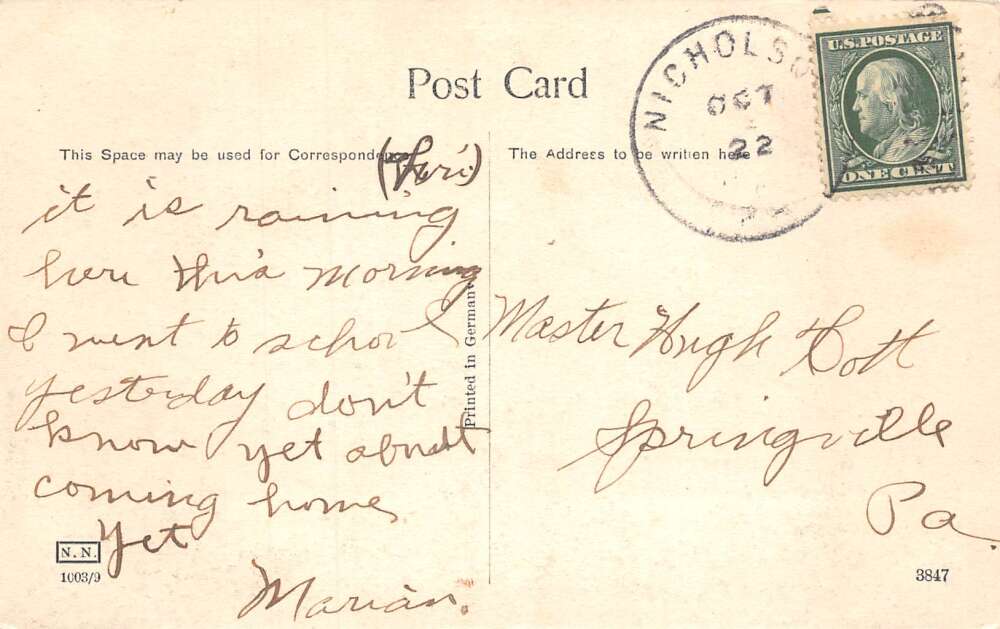 Post Card
NICHOLSO
OCT
22
PA
U.S. POSTAGE
ONE CENT
This Space may be used for Corresponden
The Address to be written here
(Fri.)
it is raining
here this morning
I went to school
yesterday don't
know yet about
coming home
yet
Marian.
Printed in Germany
Master Hugh
Springville
Pa
N. N.
1003/9
3847